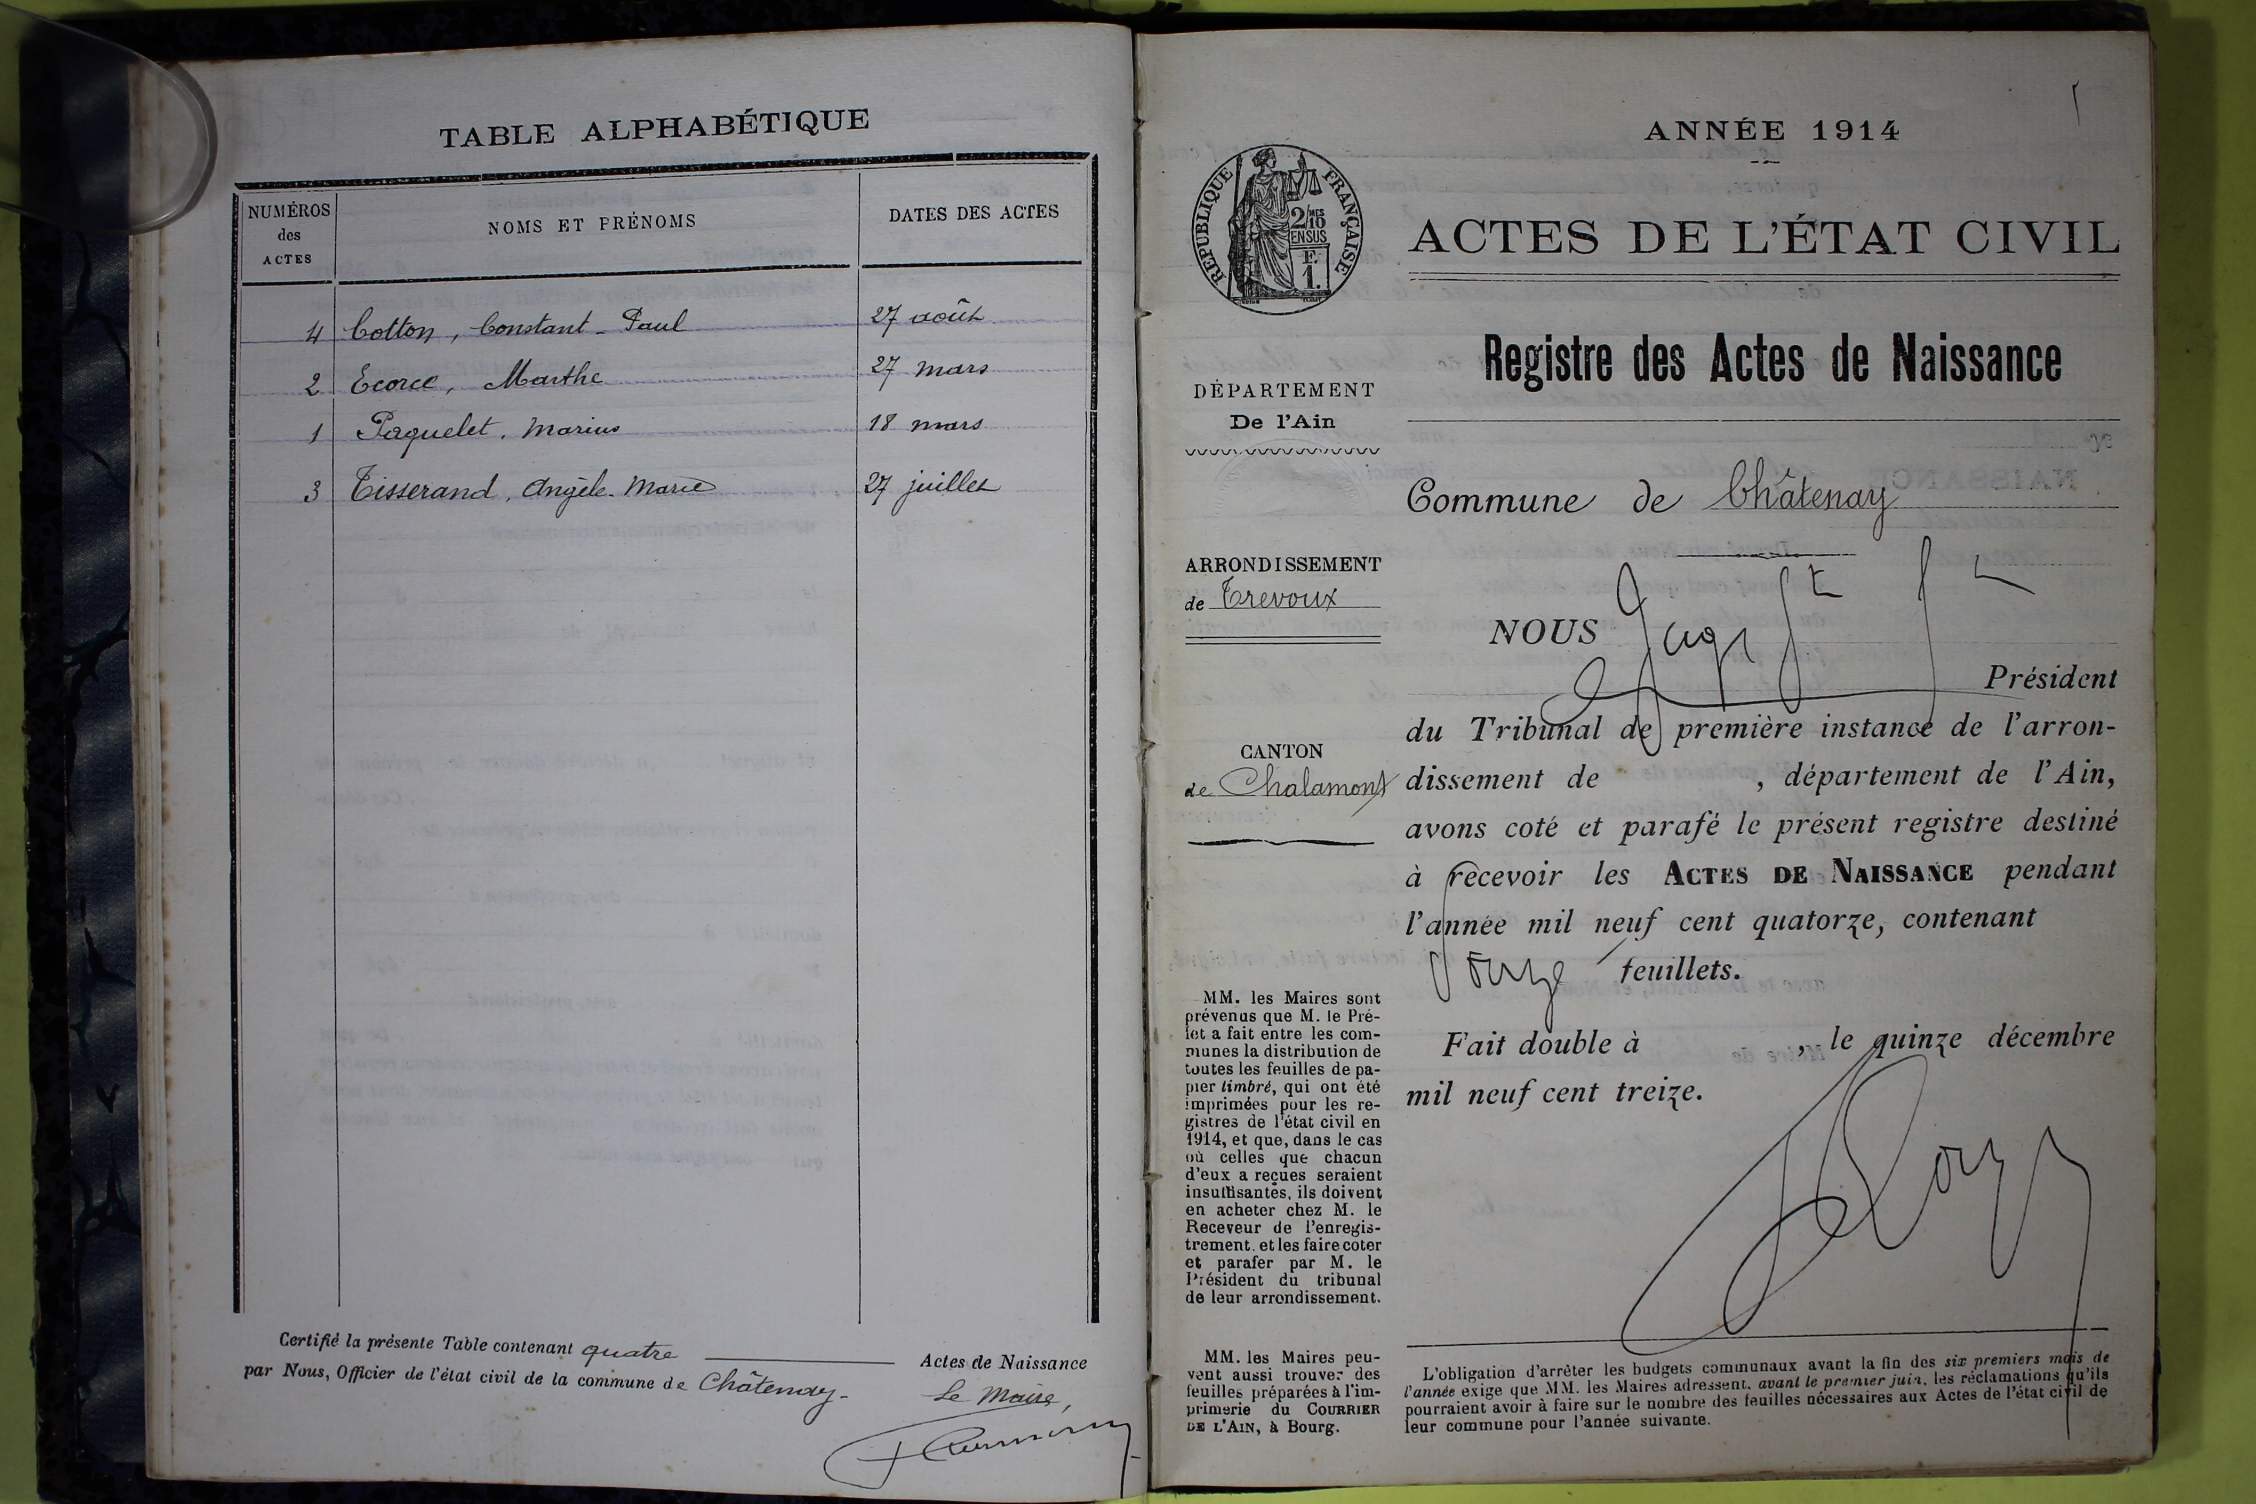 TABLE ALPHABÉTIQUE
NUMÉROS
des
ACTES
NOMS ET PRÉNOMS
DATES DES ACTES
4 Cotton, Constant-Paul 27 août
2 Ecorce, Marthe 27 mars
1 Paquelet, Marius 18 mars
3 Tisserand, Angèle-Marie 27 juillet
Certifié la présente Table contenant quatre Actes de Naissance
par Nous, Officier de l'état civil de la commune de Châtenay-
Le Maire,
ANNÉE 1914
RÉPUBLIQUE FRANÇAISE
2/10
EN SUS
F.
1.
ACTES DE L'ÉTAT CIVIL
Registre des Actes de Naissance
DÉPARTEMENT
De l'Ain
ARRONDISSEMENT
de Trevoux
CANTON
de Chalamont
MM. les Maires sont
prévenus que M. le Pré-
fet a fait entre les com-
munes la distribution de
toutes les feuilles de pa-
pier timbré, qui ont été
imprimées pour les re-
gistres de l'état civil en
1914, et que, dans le cas
où celles que chacun
d'eux a reçues seraient
insuffisantes, ils doivent
en acheter chez M. le
Receveur de l'enregis-
trement. et les faire coter
et parafer par M. le
Président du tribunal
de leur arrondissement.
MM. les Maires peu-
vent aussi trouver des
feuilles préparées à l'im-
primerie du COURRIER
DE L'AIN, à Bourg.
Commune de Châtenay
NOUS
Président
du Tribunal de première instance de l'arron-
dissement de , département de l'Ain,
avons coté et parafé le présent registre destiné
à recevoir les ACTES DE NAISSANCE pendant
l'année mil neuf cent quatorze, contenant
feuillets.
Fait double à , le quinze décembre
mil neuf cent treize.
L'obligation d'arrêter les budgets communaux avant la fin des six premiers mois de
l'année exige que MM. les Maires adressent, avant le premier juin, les réclamations qu'ils
pourraient avoir à faire sur le nombre des feuilles nécessaires aux Actes de l'état civil de
leur commune pour l'année suivante.